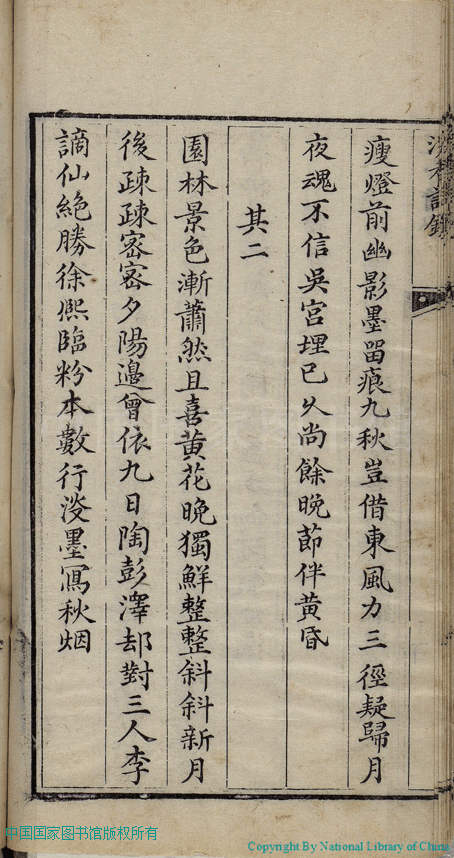 瘦燈前幽影墨留痕九秋豈借東風力三徑疑歸月
夜魂不信吳宮埋已久尚餘晚節伴黃昏
其二
園林景色漸蕭然且喜黃花晚獨鮮整整斜斜新月
後疎疎密密夕陽邊曾依九日陶彭澤却對三人李
謫仙絶勝徐熙臨粉本數行淡墨寫秋烟
中国国家图书馆版权所有
Copyright By National Library of China